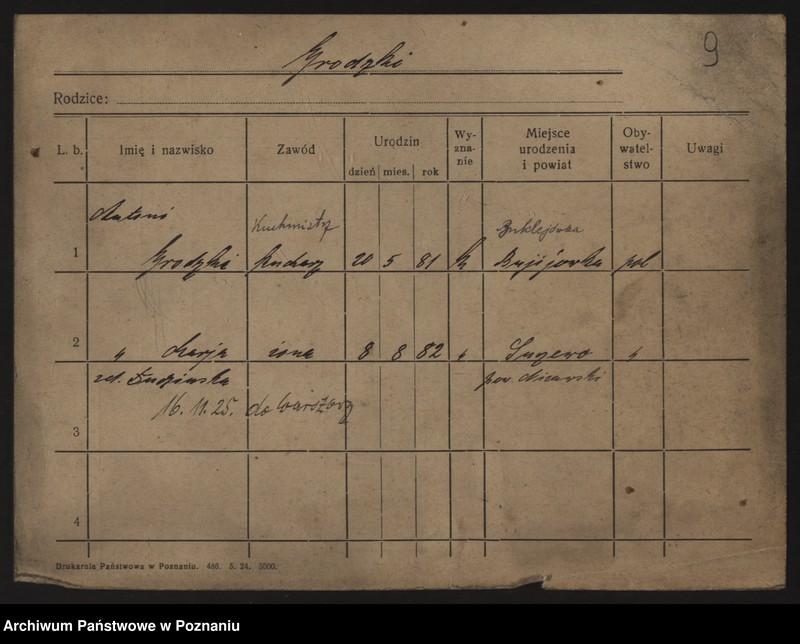 9
Grodzki
Rodzice:
L. b. Imię i nazwisko Zawód Urodzin dzień mies. rok Wy-zna-nie Miejsce urodzenia i powiat Oby-watel-stwo Uwagi
Antoni Kuchmistrz
1 Grodzki kucharz 20 5 81 k pol
2 " Marja żona 8 8 82 " "
zd. pow.
16. 11. 25. do Warszawy
3
4
Drukarnia Państwowa w Poznaniu. 486. 5. 24. 5000.
Archiwum Państwowe w Poznaniu